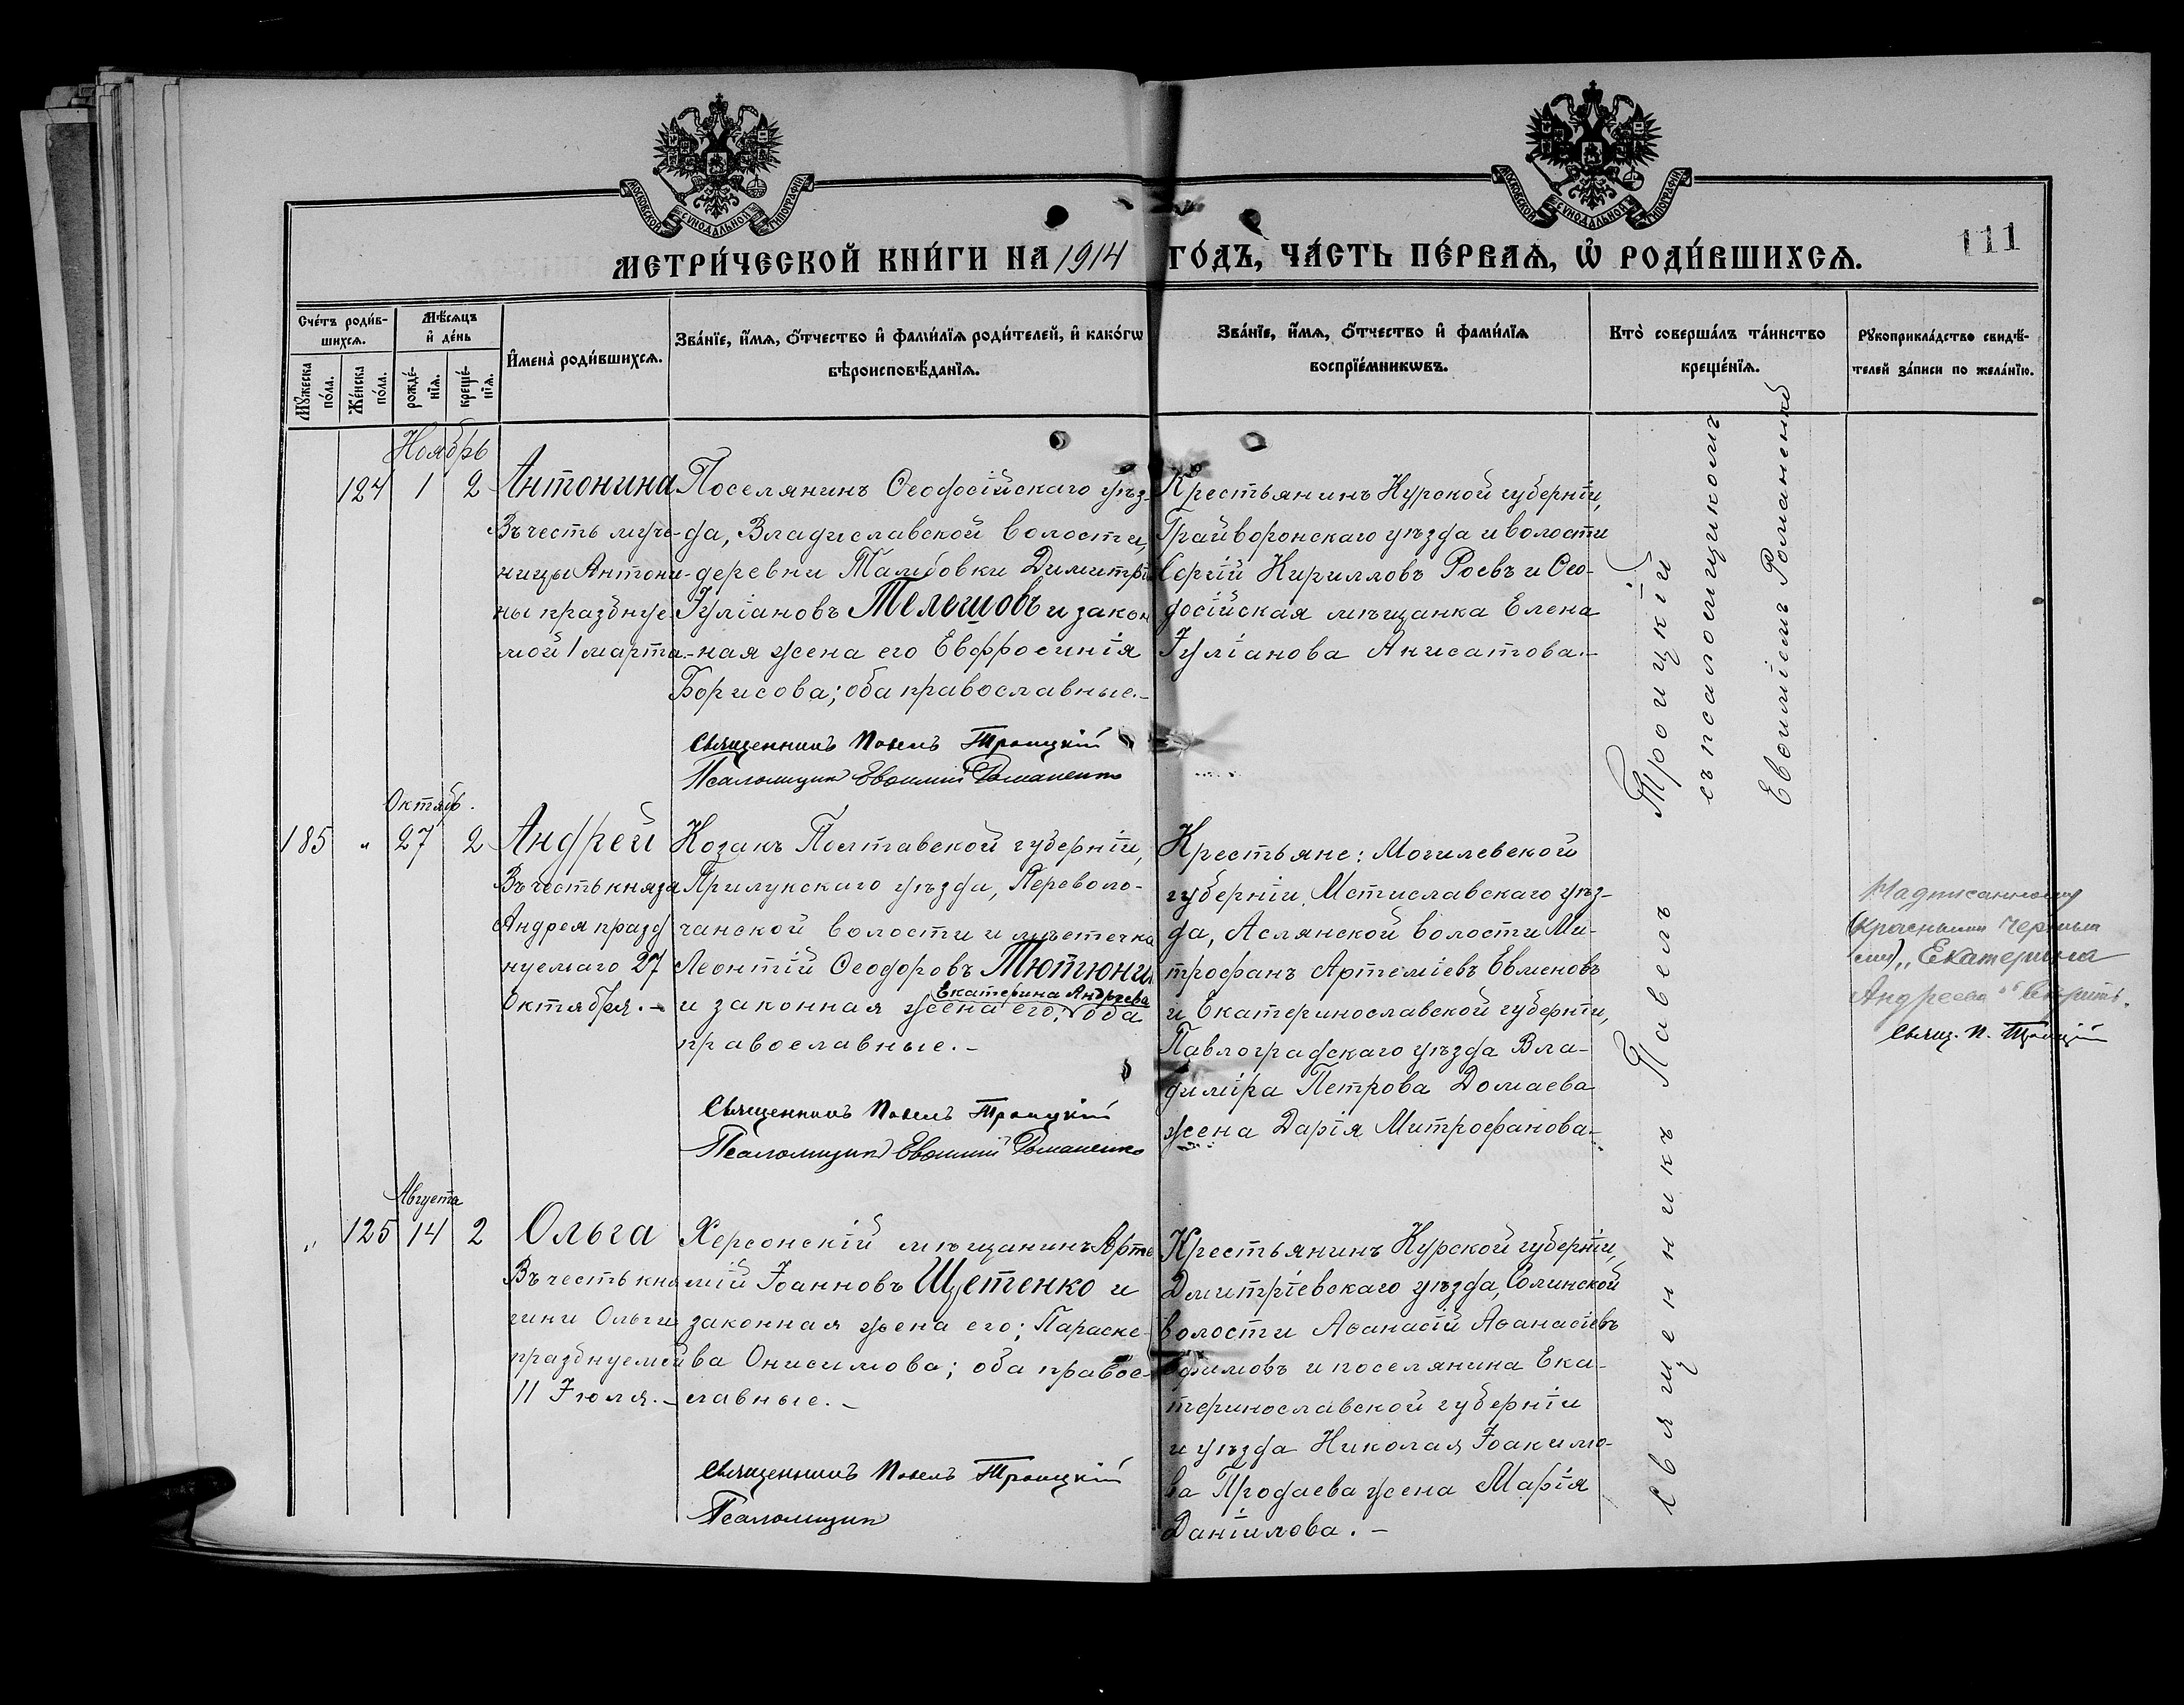 МОСКОВСКОЙ СѴНОДАЛЬНОЙ ТИПОГРАФІИ
МОСКОВСКОЙ СѴНОДАЛЬНОЙ ТИПОГРАФІИ
МЕТРИ́ЧЕСКОЙ КНИ́ГИ НА 1914 ГО́ДЪ, ЧА́СТЬ ПЕ́РВАѦ, Ѡ РОДИ́ВШИХСѦ.
111
Сче́тъ роди́в-
шихсѧ.
Мꙋ́жеска по́ла.
Же́нска по́ла.
Мѣ́сѧцъ и҆ де́нь
рожде́-
нїѧ.
креще́-
нїѧ.
И҆мена̀ роди́вшихсѧ.
Зва́нїе, и҆́мѧ, ѻ҆́тчество и҆ фами́лїѧ роди́телей, и҆ како́гѡ
вѣроисповѣ́данїѧ.
Зва́нїе, и҆́мѧ, ѻ҆́тчество и҆ фами́лїѧ
воспрїе́мникѡвъ.
Кто̀ соверша́лъ та́инство
креще́нїѧ.
Рꙋкоприкла́дство свидѣ́-
телей за́писи по жела́нїю.
Ноябрь
124 1 2
Антонина
Въ честь муче-
ницы Антони-
ны празднуе-
мой 1 марта.-
Поселянинъ Ѳеодосійскаго уѣз-
да, Владиславской волости,
деревни Тамбовки Димитрій
Іуліановъ Телешовъ и закон
ная жена его Евфросинія
Борисова; оба православные.-
Священникъ Павелъ Троицкій
Псаломщик Евѳимій Романенко
Крестьянинъ Курской губерніи,
Грайворонскаго уѣзда и волости
Сергій Кирилловъ Роевъ и Ѳео-
досійская мѣщанка Елена
Іуліанова Анисатова.-
Октябр.
185 " 27 2
Андрей
Въ честь князя
Андрея празд
нуемаго 27
Октября.-
Козакъ Полтавской губерніи,
Прилукскаго уѣзда, Переволо-
чанской волости и мѣстечка
Леонтій Ѳеодоровъ Тютюник
Екатерина Андреева
и законная жена его; оба
православные.-
Священникъ Павелъ Троицкій
Псаломщик Евѳимій Романенко
Крестьяне: Могилевской
губерніи Мстиславскаго уѣз-
да, Аслянской волости Ми-
трофанъ Артеміевъ Евменовъ
и Екатеринославской губерніи,
Павлоградскаго уѣзда Вла-
диміра Петрова Домаева
жена Дарія Митрофанова.-
Надписанному
(красными черни­лами) „Екатерина
Андреева" вѣрить.
Свящ. П. Троицкій
Августа
" 125 14 2
Ольга
Въ честь кня
гини Ольги
празднуемой
11 Іюля.-
Херсонскій мѣщанинъ Арте
мій Іоанновъ Щетенко и
законная жена его; Параске-
ва Онисимова; оба правос-
лавные.-
Священникъ Павелъ Троицкій
Псаломщик
Крестьянинъ Курской губерніи,
Дмитріевскаго уѣзда, Солинской
волости Аѳанасій Аѳанасіевъ
Ефимовъ и поселянина Ека-
теринославской губерніи
и уѣзда Николая Іоакимо-
ва Продаева жена Марія
Даніилова.-
Священникъ Павелъ Троицкій
съ псаломщикомъ
Евѳиміемъ Романенко